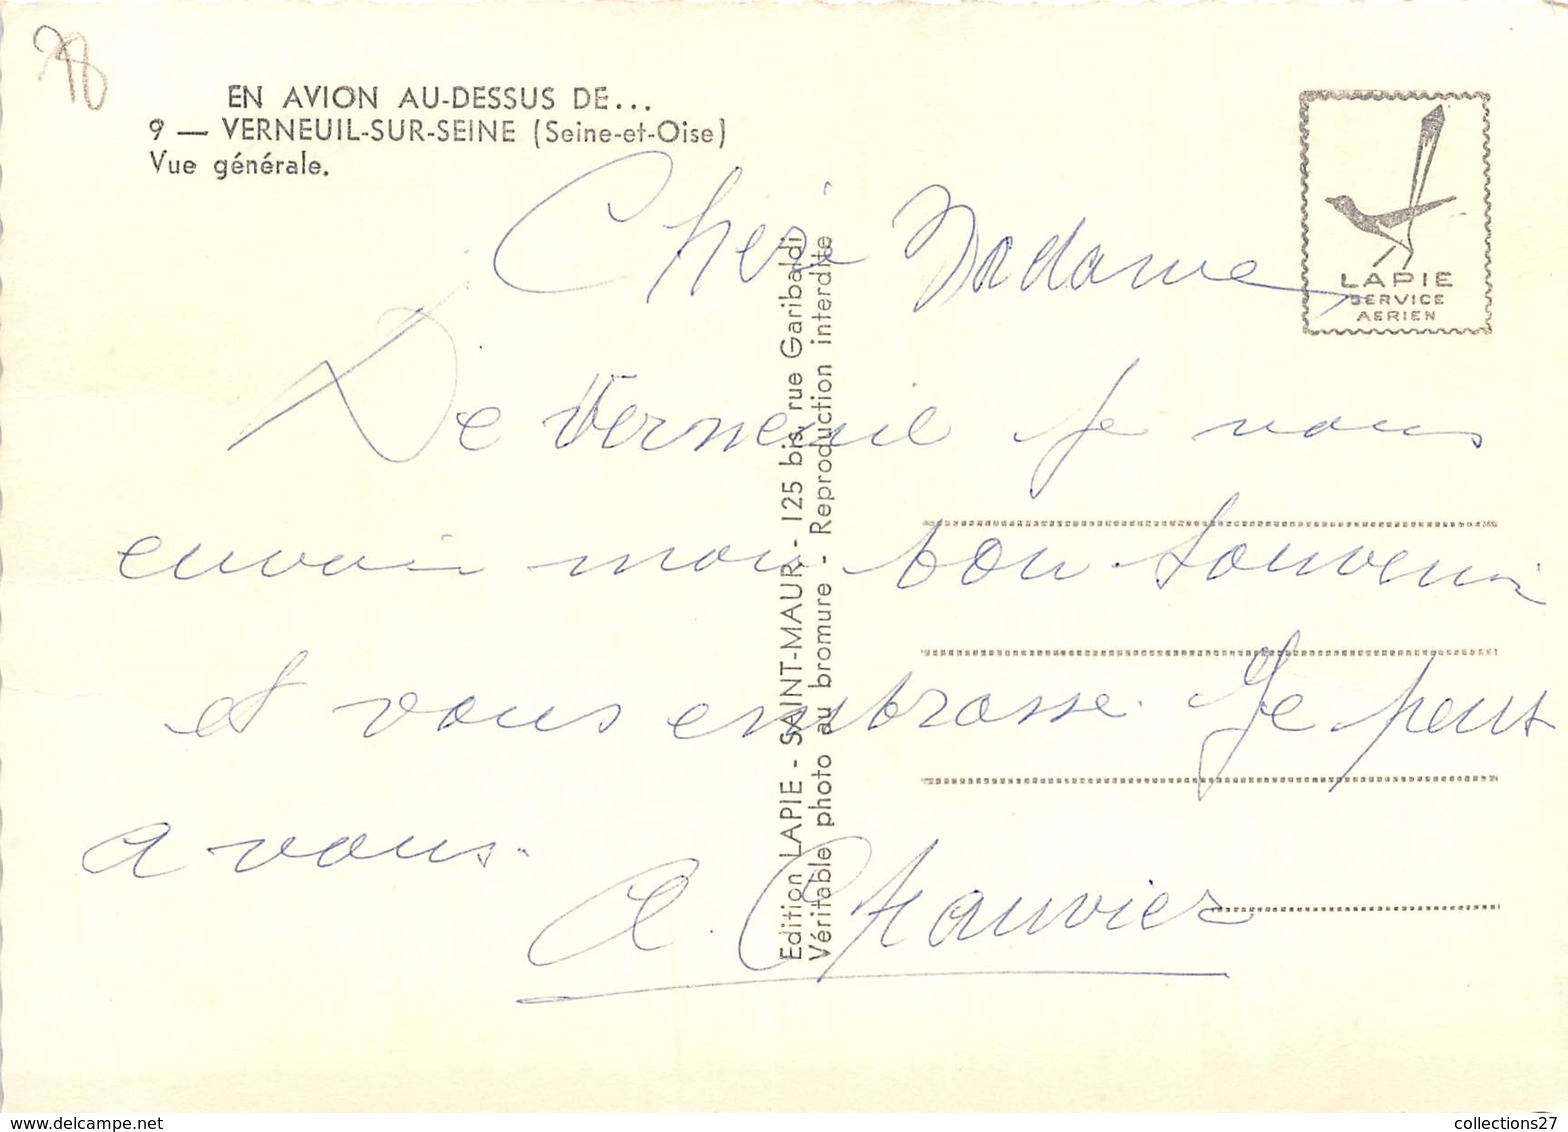 78
EN AVION AU-DESSUS DE...
9 — VERNEUIL-SUR-SEINE (Seine-et-Oise)
Vue générale.
LAPIE
SERVICE
AERIEN
Edition LAPIE - SAINT-MAUR - 125 bis, rue Garibaldi
Véritable photo au bromure - Reproduction interdite
Chère Madame
De Verneuil je vous
envoie mon bon souvenir
et vous embrasse. Je pense
a vous.
A. Chauvier
collections27